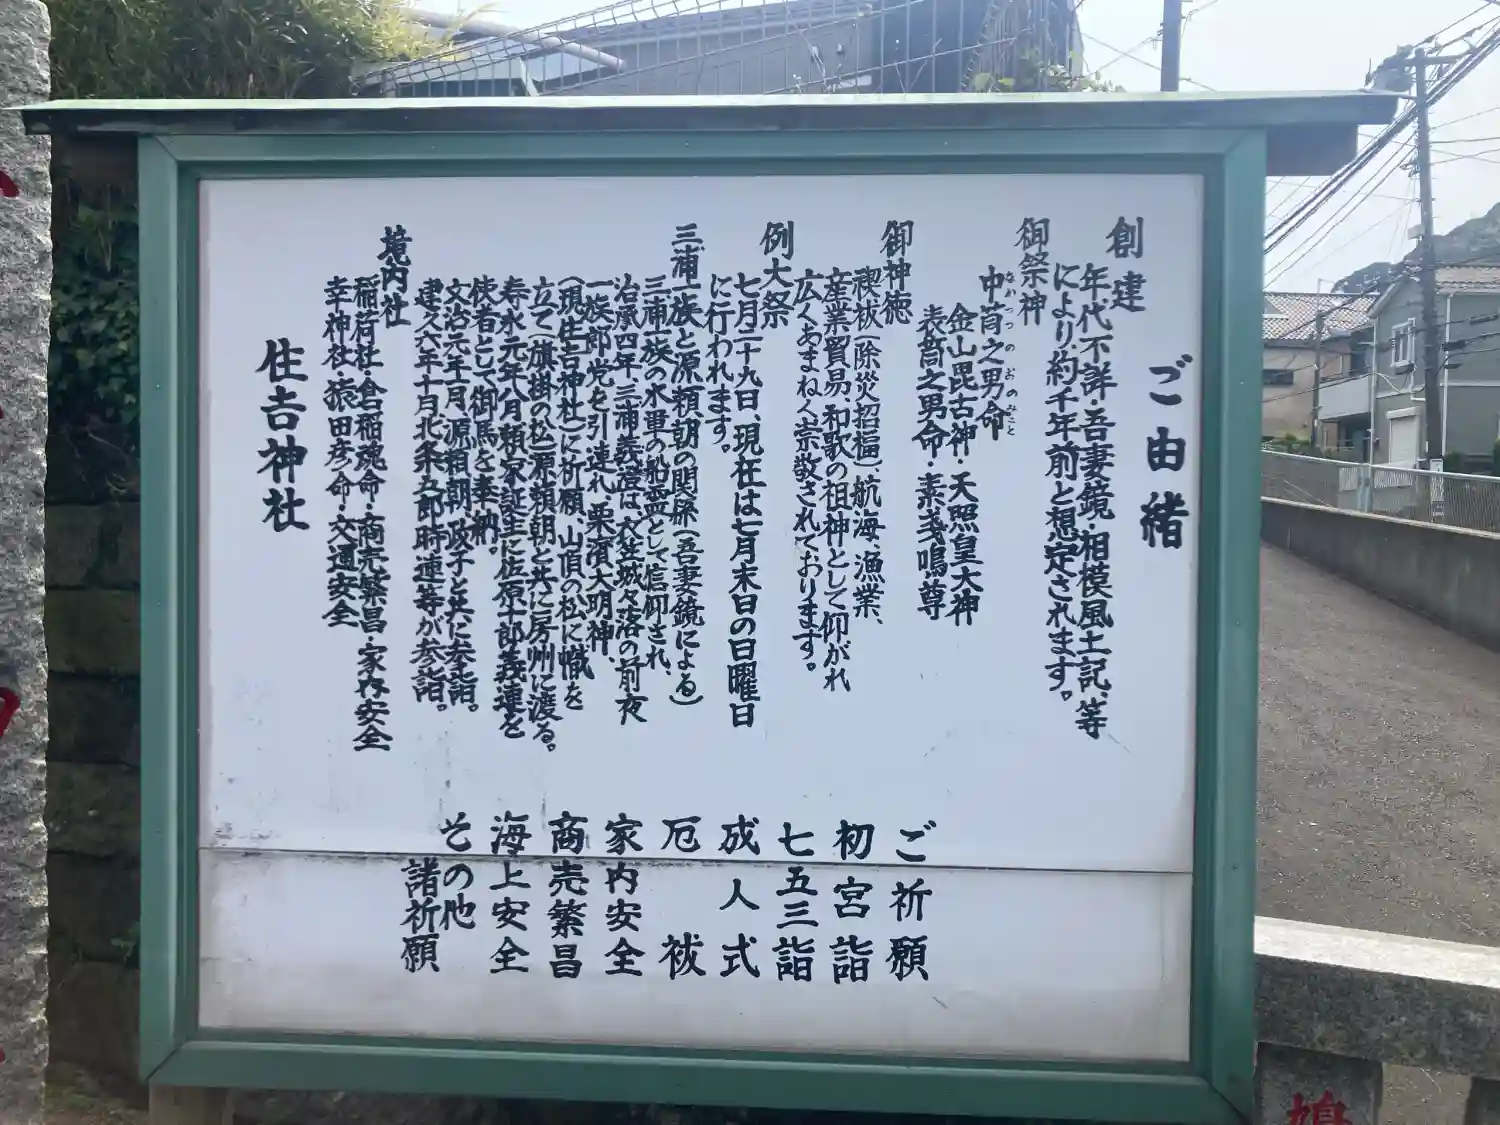 ご由緒
創建
年代不詳・吾妻鏡・相模風土記、等
により約千年前と想定されます。
御祭神
中筒之男命
なかつつのおのみこと
金山毘古神・天照皇大神
表筒之男命・素戔鳴尊
御神徳
禊祓(除災招福)、航海、漁業、
産業貿易、和歌の祖神として仰がれ
広くあまねく崇敬されております。
例大祭
七月二十九日、現在は七月末日の日曜日
に行われます。
三浦一族と源頼朝の関係(吾妻鏡による)
三浦一族の水軍の船霊として信仰され、
治承四年、三浦義澄は、衣笠城々落の前夜
一族郎党を引連れ、栗濱大明神、
(現住吉神社)に祈願、山頂の松に幟を
立て(旗掛の松)源頼朝と共に房州に渡る。
寿永元年八月頼家誕生に佐原十郎義連を
使者として御馬を奉納。
文治元年一月、源頼朝、政子と共に参詣。
建久六年十月北条五郎時連等が参詣。
境内社
稲荷社・倉稲魂命・商売繁昌・家内安全
幸神社・猿田彦命・交通安全
住吉神社
ご祈願
初宮詣
七五三詣
成人式
厄祓
家内安全
商売繁昌
海上安全
その他
諸祈願